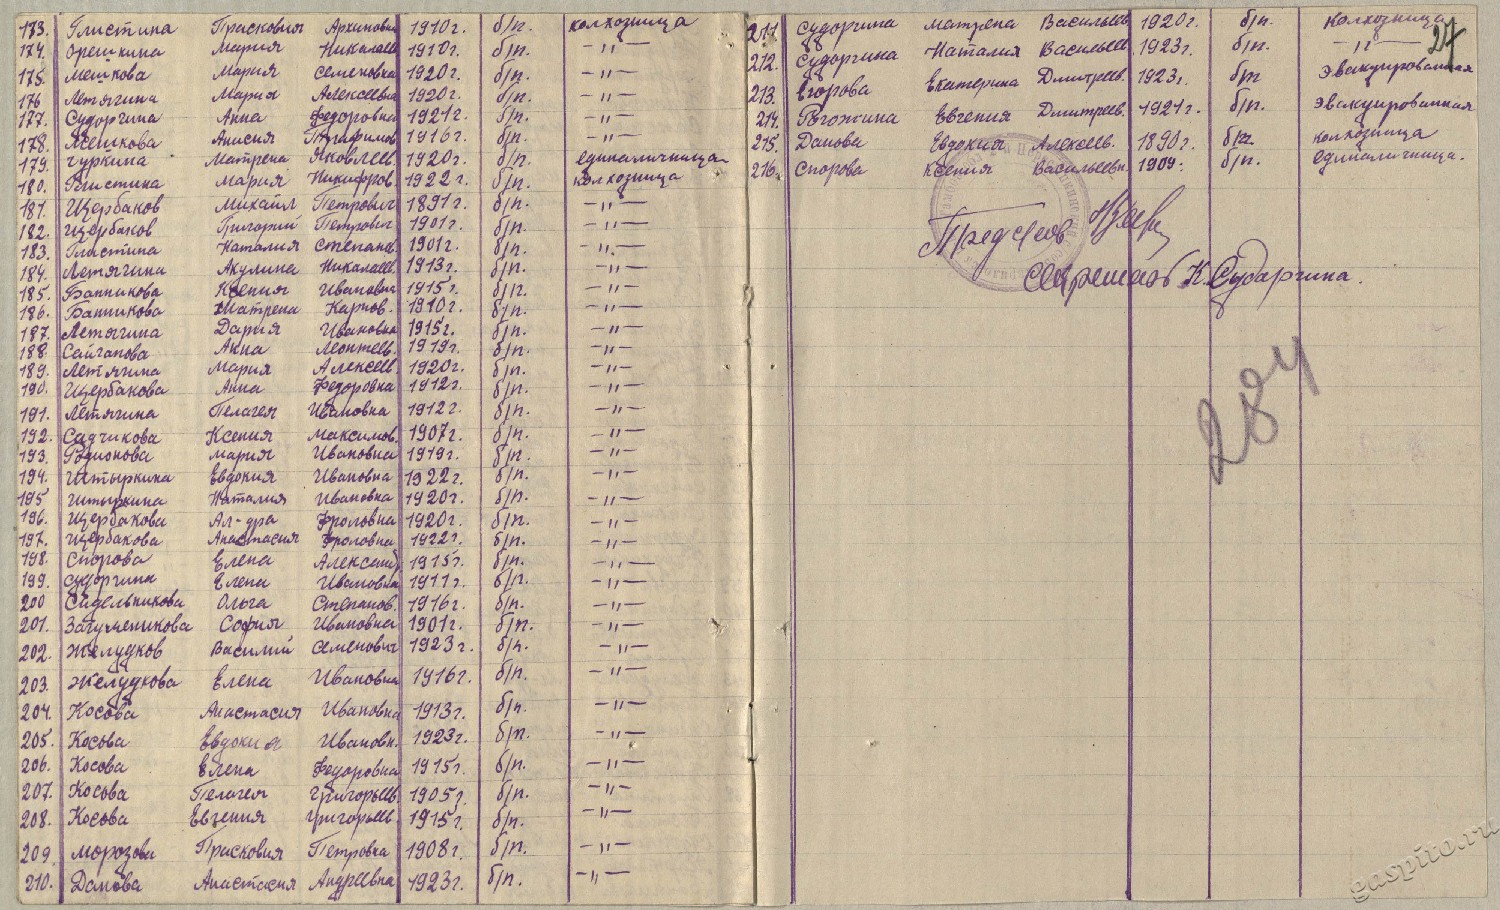 173. Глистина Прасковия Архиповна 1910г. б/п. колхозница
174. Орешкина Мария Николаевн 1910г. б/п. —"—
175. Мешкова Мария Семеновна 1920г. б/п. —"—
176 Летягина Мария Алексеевна 1920г. б/п. —"—
177. Судоргина Анна Федоровна 1921г. б/п. —"—
178. Мешкова Анисия Трифимов 1916г. б/п. —"—
179. Чуркина Матрена Яковлеев. 1920г. б/п. единаличница
180. Глистина Мария Никифров. 1922г. б/п. колхозница
181. Щербаков Михаил Петрович 1891г. б/п. —"—
182. Щербаков Григорий Петрович 1901г. б/п. —"—
183. Глистина Наталия Степана. 1901г. б/п. —"—
184. Летягина Акулина Николаев. 1913г. б/п. —"—
185. Банникова Ксения Ивановна 1915г. б/п. —"—
186. Банникова Матрена Карпов. 1910г. б/п. —"—
187. Летягина Дария Ивановна 1915г. б/п. —"—
188. Сайгапова Анна Леонтев. 1919г. б/п. —"—
189. Летягина Мария Алексеев. 1920г. б/п. —"—
190. Щербакова Анна Федоровна 1912г. б/п. —"—
191. Летягина Пелагея Ивановна 1912г. б/п. —"—
192. Садчикова Ксения Максимов. 1907г. б/п. —"—
193. Родионова Мария Ивановна 1919г. б/п. —"—
194. Читыркина Евдокия Ивановна 1922г. б/п. —"—
195 Читыркина Наталия Ивановна 1920г. б/п. —"—
196. Щербакова Ал-дра Фроловна 1920г. б/п. —"—
197. Щербакова Анастасия Фроловна 1922г. б/п. —"—
198. Спорова Елена Алексеев 1915г. б/п. —"—
199. Судоргина Елена Ивановна 1911г. б/п. —"—
200 Сидельникова Ольга Степанов. 1916г. б/п. —"—
201. Загученикова София Ивановна 1901г. б/п. —"—
202. Желудков Василий Семенович 1923г. б/п. —"—
203. Желудкова Елена Ивановна 1916г. б/п. —"—
204. Косова Анастасия Ивановна 1913г. б/п. —"—
205. Косова Евдокия Ивановн. 1923г. б/п. —"—
206. Косова Елена Федоровна 1915г. б/п. —"—
207. Косова Пелагея Григорьев. 1905г. б/п. —"—
208. Косова Евгения Григорьев. 1915г. б/п. —"—
209. Морозова Прасковия Петровна 1908г. б/п. —"—
210. Данова Анастасия Андреевна 1923г. б/п. —"—
27
211 Судоргина Матрена Васильев 1920г. б/п. колхозница
212. Судоргина Наталия Васильев 1923г. б/п. —"—
213. Егорова Екатерина Дмитреев. 1923г. б/п эвакуированная
214. Рогожина Евгения Дмитреев. 1921г. б/п. эвакуированная
215. Данова Евдокия Алексеев. 1890г. б/п. колхозница
216. Спорова Ксения Васильевн. 1909. б/п. единаличница.
Пред с/сов
Секретарь К. Сударгина.
284
gaspito.ru